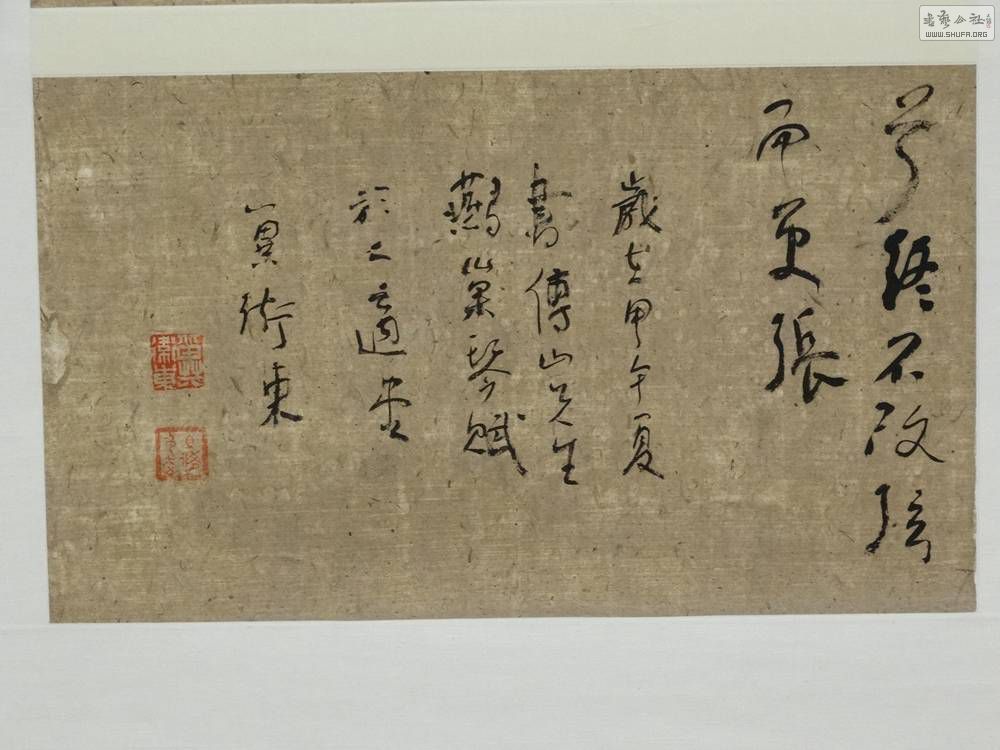 兮終不改絃
而更張
歲在甲午夏
書傅山先生
鷰巢琴賦
於之適堂
冀衛東
書藝公社
WWW.SHUFA.ORG